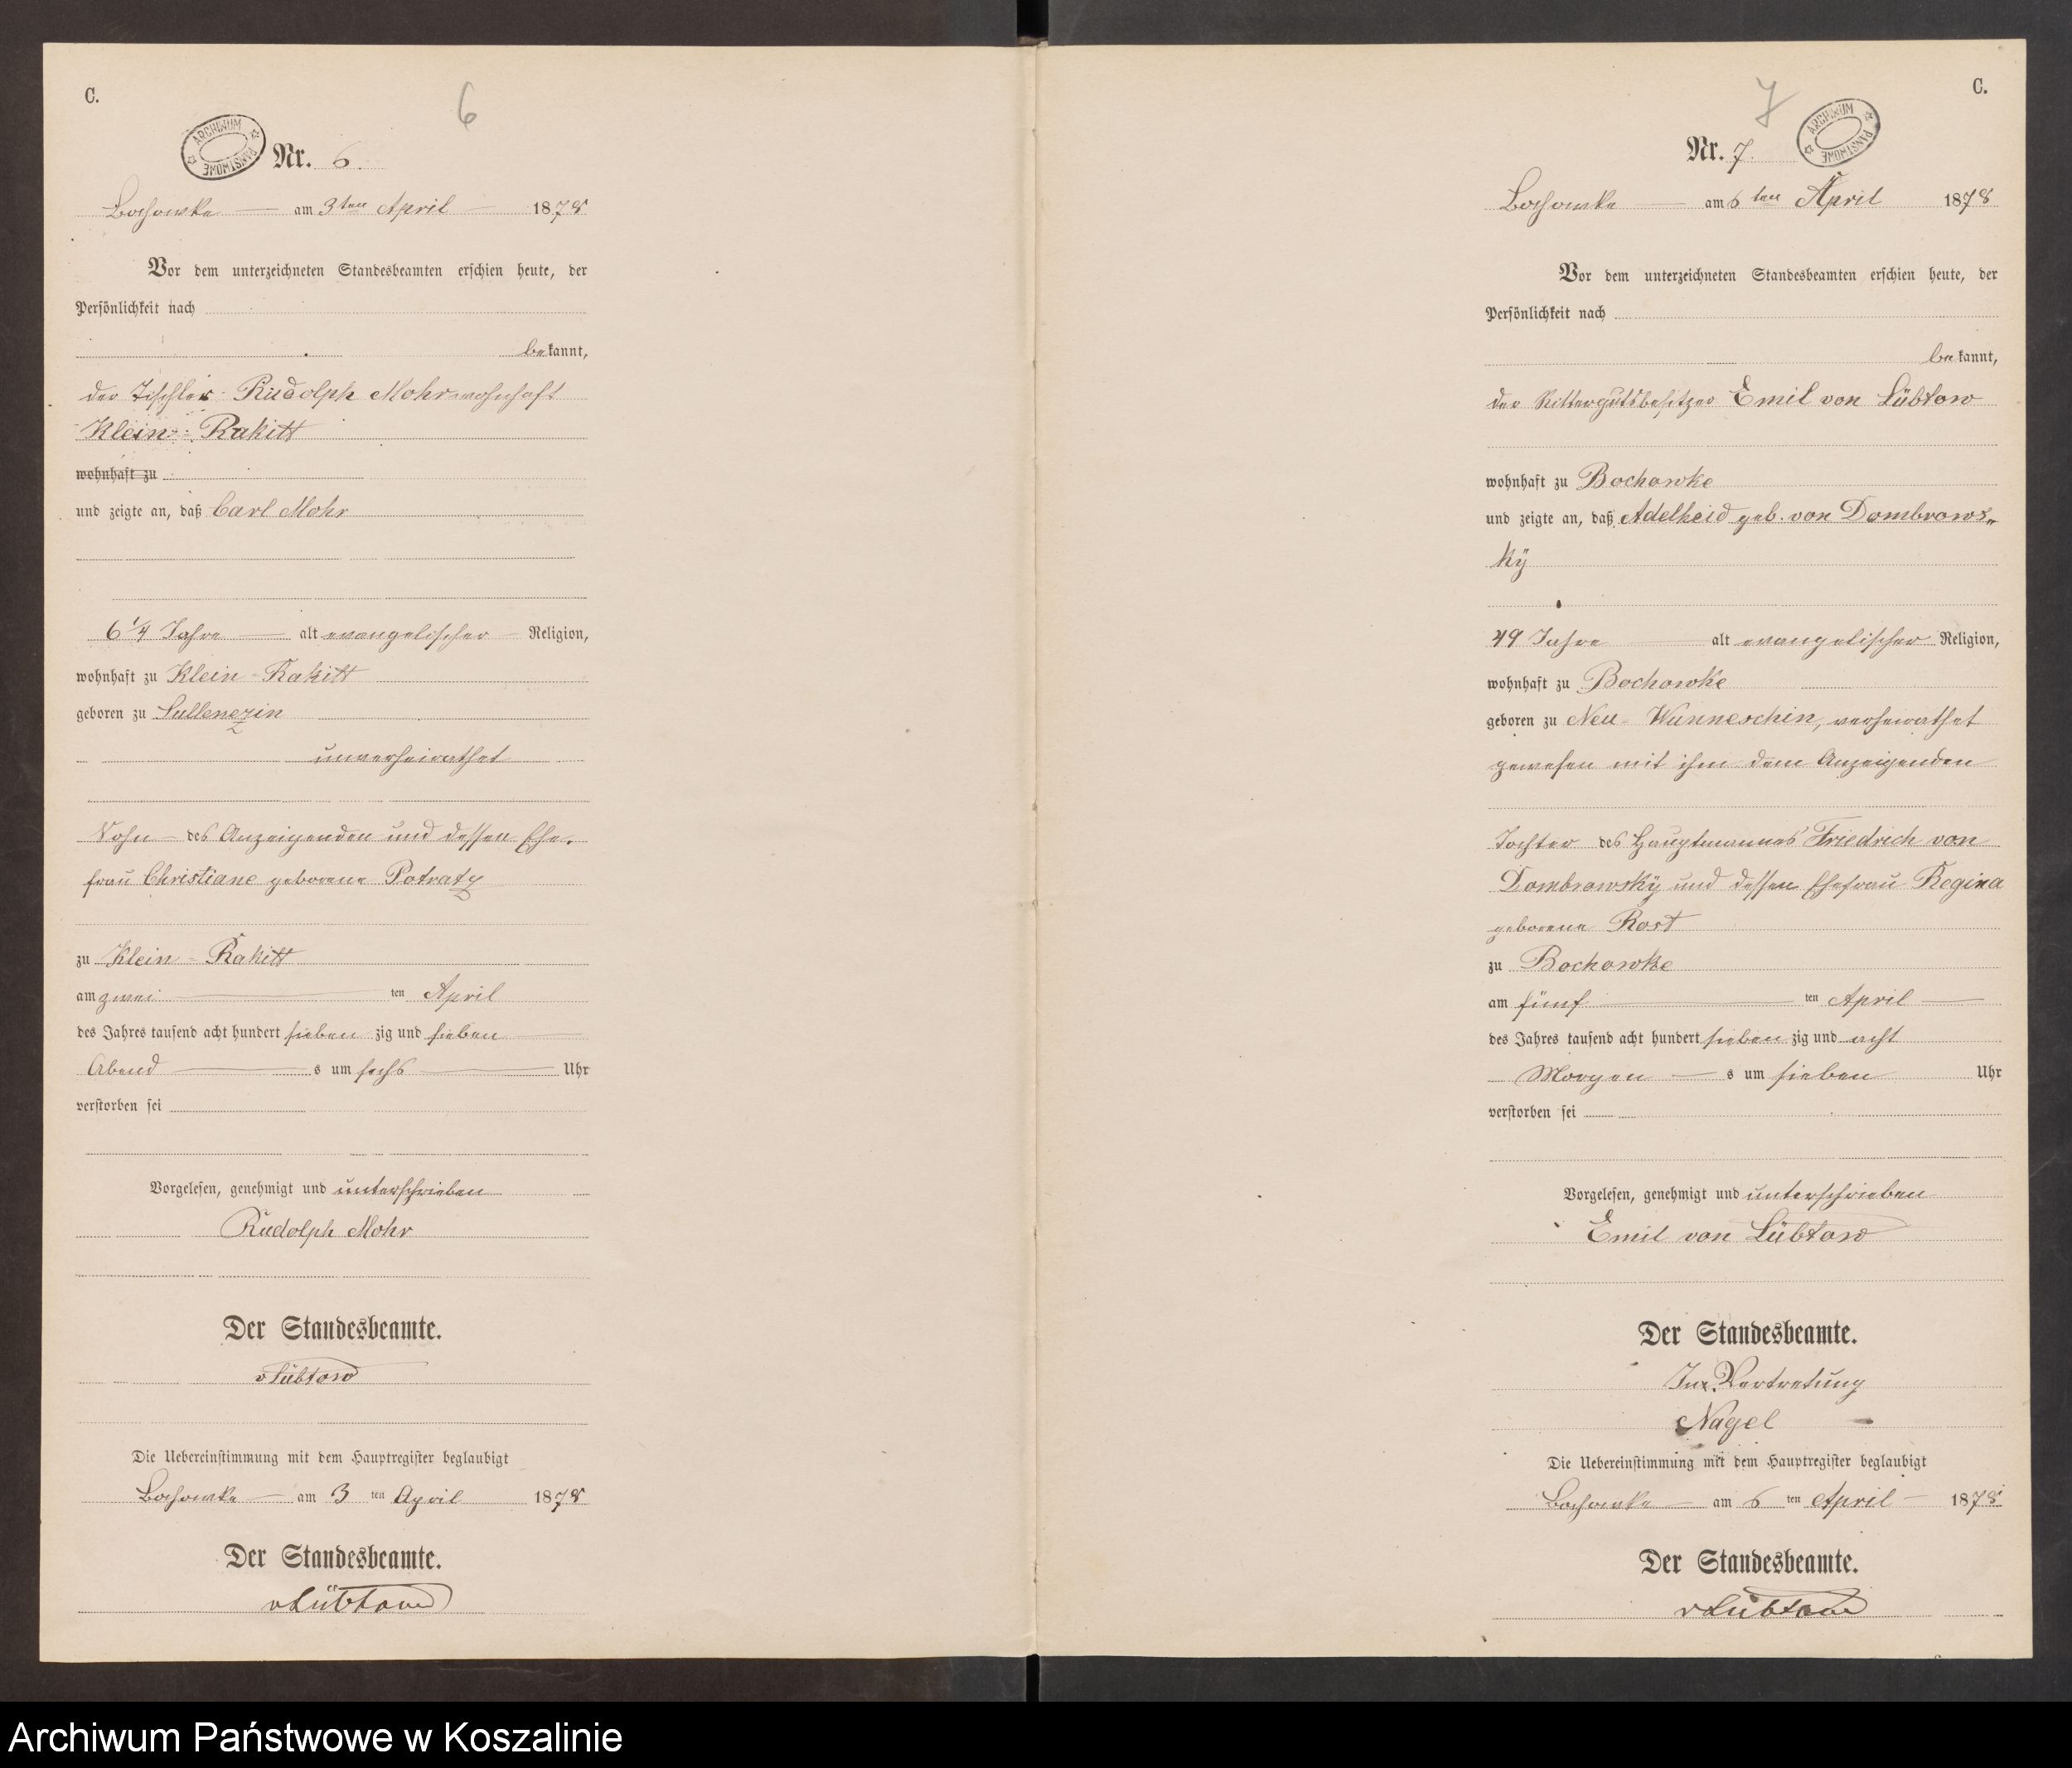 C.
6
ARCHIWUM PAŃSTWOWE
Nr. 6.
Bochowke — am 3ten April — 1878
Vor dem unterzeichneten Standesbeamten erschien heute, der
Persönlichkeit nach
bekannt,
der Tischler Rudolph Mohr wohnhaft
Klein-Rakitt
wohnhaft zu
und zeigte an, daß Carl Mohr
6 1/4 Jahre — alt evangelischer Religion,
wohnhaft zu Klein-Rakitt
geboren zu Sullenczin
unverheirathet
Sohn des Anzeigenden und dessen Ehe-
frau Christiane geborene Potratz
zu Klein-Rakitt
am zwei — ten April
des Jahres tausend acht hundert sieben zig und sieben
Abend — s um sechs — Uhr
verstorben sei
Vorgelesen, genehmigt und unterschrieben
Rudolph Mohr
Der Standesbeamte.
vLübtow
Die Uebereinstimmung mit dem Hauptregister beglaubigt
Bochowke — am 3 ten April 1878
Der Standesbeamte.
vLübtow
C.
7
ARCHIWUM PAŃSTWOWE
Nr. 7.
Bochowke — am 6 ten April 1878
Vor dem unterzeichneten Standesbeamten erschien heute, der
Persönlichkeit nach
bekannt,
der Rittergutsbesitzer Emil von Lübtow
wohnhaft zu Bochowke
und zeigte an, daß Adelheid geb. von Dombrows„
ky
49 Jahre — alt evangelischer Religion,
wohnhaft zu Bochowke
geboren zu Neu-Wunneschin, verheirathet
gewesen mit ihm dem Anzeigenden
Tochter des Hauptmannes Friedrich von
Dombrowsky und dessen Ehefrau Regina
geborene Rost
zu Bochowke
am fünf — ten April —
des Jahres tausend acht hundert sieben zig und acht
Morgen — s um sieben Uhr
verstorben sei
Vorgelesen, genehmigt und unterschrieben
Emil von Lübtow
Der Standesbeamte.
In Vertretung
Nagel
Die Uebereinstimmung mit dem Hauptregister beglaubigt
Bochowke — am 6 ten April — 1878
Der Standesbeamte.
vLübtow
Archiwum Państwowe w Koszalinie